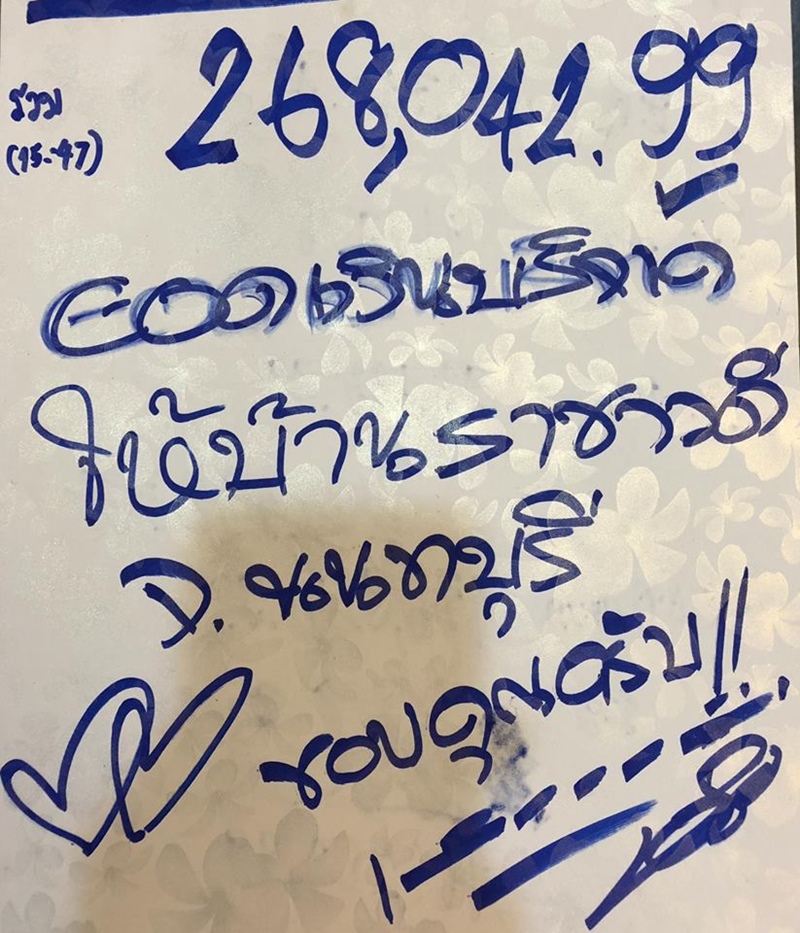 268,042.99
รวม
(15.47)
ยอดเงินบริจาค
ให้บ้านราชาวดี
จ. นนทบุรี
ขอบคุณครับ!!